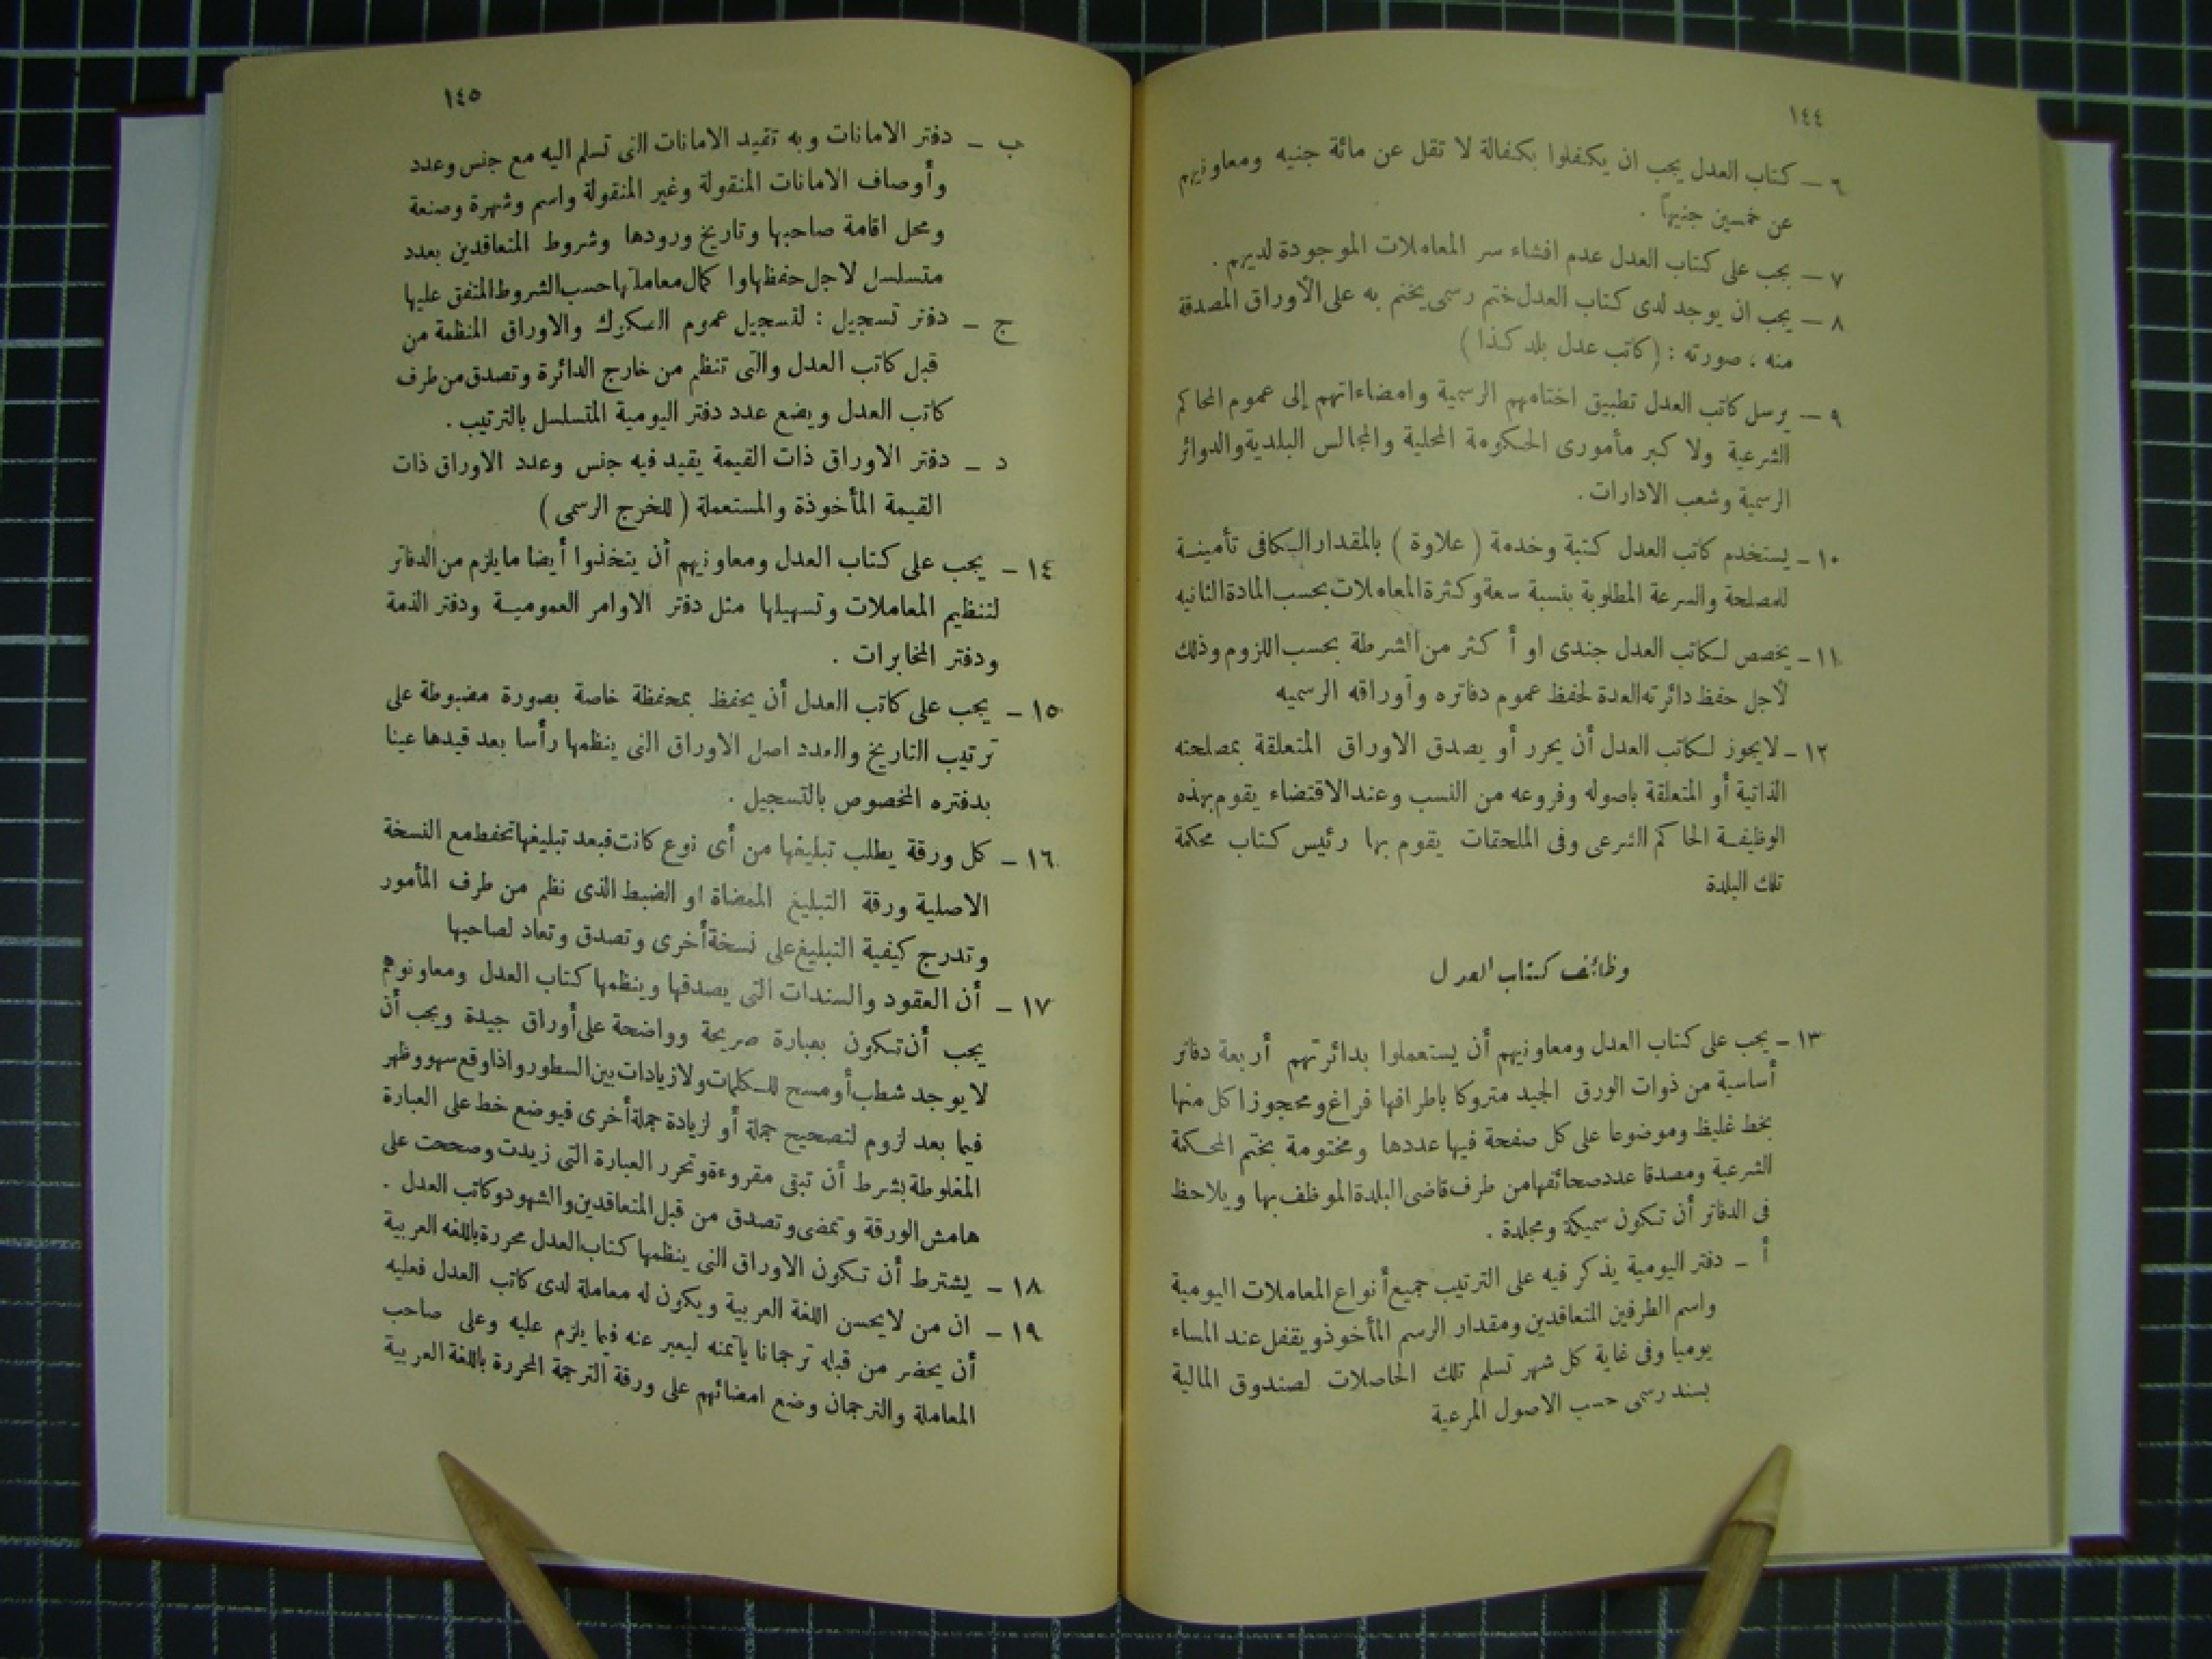 ١٤٤
٦ — كتاب العدل يجب ان يكفلوا بكفالة لا تقل عن مائة جنيه ومعاونيهم
عن خمسين جنيهاً .
٧ — يجب على كتاب العدل عدم افشاء سر المعاملات الموجودة لديهم .
٨ — يجب ان يوجد لدى كتاب العدل ختم رسمى يختم به على الأوراق المصدقة
منه ، صورته : (كاتب عدل بلد كذا )
٩ — يرسل كاتب العدل تطبيق اختامهم الرسمية وامضاءاتهم إلى عموم المحاكم
الشرعية ولا كبر مأمورى الحكومة المحلية والمجالس البلدية والدوائر
الرسمية وشعب الادارات .
١٠ - يستخدم كاتب العدل كتبة وخدمة ( علاوة ) بالمقدار الكافى تأمينـة
للمصلحة والسرعة المطلوبة بنسبة سعة وكثرة المعاملات بحسب المادة الثانيه
١١ - يخصص لكاتب العدل جندى او أ كثر من الشرطة بحسب اللزوم وذلك
لأجل حفظ دائرته العدة لحفظ عموم دفاتره وأوراقه الرسميه
١٢ - لايجوز لكاتب العدل أن يحرر أو يصدق الاوراق المتعلقة بمصلحته
الذاتية أو المتعلقة باصوله وفروعه من النسب وعند الاقتضاء يقوم بهذه
الوظيفـة الحاكم الشرعى وفى الملحقات يقوم بها رئيس كتاب محكمة
تلك البلدة
وظائف كتاب العدل
١٣ - يجب على كتاب العدل ومعاونيهم أن يستعملوا بدائرتهم أربعة دفاتر
أساسية من ذوات الورق الجيد متروكا باطرافها فراغ ومحجوزا كل منها
بخط غليظ وموضوعا على كل صفحة فيها عددها ومختومة بختم المحكمة
الشرعية ومصدقا عدد صحائفها من طرف قاضى البلدة الموظف بها ويلاحظ
فى الدفاتر أن تكون سميكة ومجلدة .
أ — دفتر اليومية يذكر فيه على الترتيب جميع أنواع المعاملات اليومية
واسم الطرفين المتعاقدين ومقدار الرسم المأخوذ ويقفل عند المساء
يوميا وفى غاية كل شهر تسلم تلك الحاصلات لصندوق المالية
بسند رسمى حسب الاصول المرعية
١٤٥
ب — دفتر الامانات وبه تقيد الامانات التى تسلم اليه مع جنس وعدد
وأوصاف الامانات المنقولة وغير المنقولة واسم وشهرة وصنعة
ومحل اقامة صاحبها وتاريخ ورودها وشروط المتعاقدين بعدد
متسلسل لاجل حفظها وا كمال معاملتها حسب الشروط المتفق عليها
ج — دفتر تسجيل : لتسجيل عموم الصكوك والاوراق المنظمة من
قبل كاتب العدل والتى تنظم من خارج الدائرة وتصدق من طرف
كاتب العدل ويضع عدد دفتر اليومية المتسلسل بالترتيب .
د — دفتر الاوراق ذات القيمة يقيد فيه جنس وعدد الاوراق ذات
القيمة المأخوذة والمستعملة ( للخرج الرسمى )
١٤ — يجب على كتاب العدل ومعاونيهم أن يتخذوا أيضا مايلزم من الدفاتر
لتنظيم المعاملات وتسهيلها مثل دفتر الاوامر العموميـة ودفتر الذمة
ودفتر المخابرات .
١٥ — يجب على كاتب العدل أن يحفظ بمحفظة خاصة بصورة مضبوطة على
ترتيب التاريخ والعدد اصل الاوراق التى ينظمها رأسا بعد قيدها عينا
بدفتره المخصوص بالتسجيل .
١٦ — كل ورقة يطلب تبليغها من أى نوع كانت فبعد تبليغها تحفظ مع النسخة
الاصلية ورقة التبليغ الممضاة او الضبط الذى نظم من طرف المأمور
وتدرج كيفية التبليغ على نسخة أخرى وتصدق وتعاد لصاحبها
١٧ — أن العقود والسندات التى يصدقها وينظمها كتاب العدل ومعاونوهم
يجب أن تكون بعبارة صريحة وواضحة على أوراق جيدة ويجب أن
لايوجد شطب أو مسح للكلمات ولا زيادات بين السطور واذا وقع سهو وظهر
فيما بعد لزوم لتصحيح جملة أو لزيادة جملة أخرى فيوضع خط على العبارة
المغلوطة بشرط أن تبقى مقروءة وتحرر العبارة التى زيدت وصححت على
هامش الورقة وتمضى وتصدق من قبل المتعاقدين والشهود وكاتب العدل .
١٨ — يشترط أن تكون الاوراق التى ينظمها كتاب العدل محررة باللغه العربية
١٩ — ان من لايحسن اللغة العربية ويكون له معاملة لدى كاتب العدل فعليه
أن يحضر من قبله ترجمانا يأتمنه ليعبر عنه فيما يلزم عليه وعلى صاحب
المعاملة والترجمان وضع امضائهم على ورقة الترجمة المحررة باللغة العربية